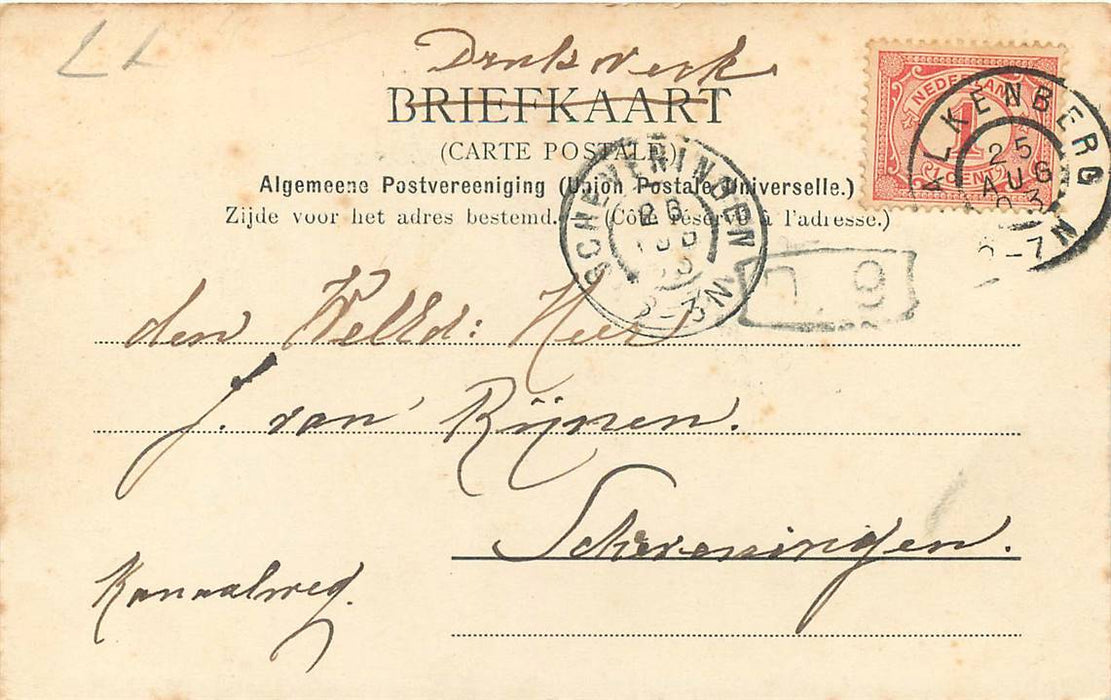 LL
Drukwerk
BRIEFKAART
(CARTE POSTALE)
Algemeene Postvereeniging (Union Postale Universelle.)
Zijde voor het adres bestemd. (Côté réservé à l'adresse.)
NEDERLAND
1
CENT
ALKENBERG
25
AUG
03
6-7N
SCHEVENINGEN
26
AUG
03
2-3N
den WelEd: Heer
J. van Rijnen.
Scheveningen.
Kanaalweg.